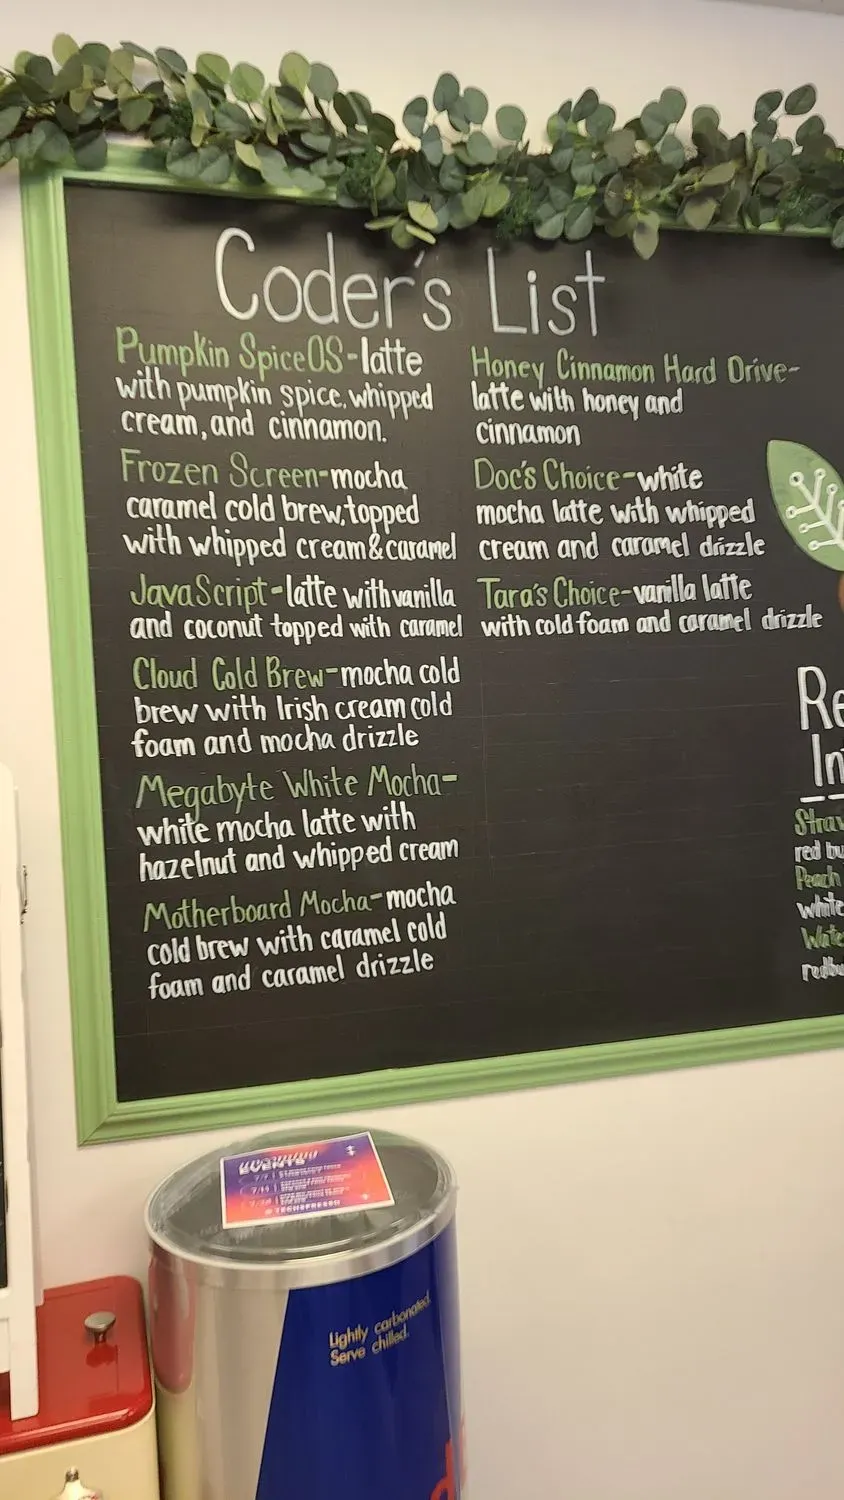 Coder's List
Pumpkin Spice OS-latte
with pumpkin spice, whipped
cream, and cinnamon.
Frozen Screen-mocha
caramel cold brew, topped
with whipped cream & caramel
JavaScript-latte with vanilla
and coconut topped with caramel
Cloud Cold Brew-mocha cold
brew with Irish cream cold
foam and mocha drizzle
Megabyte White Mocha-
white mocha latte with
hazelnut and whipped cream
Motherboard Mocha-mocha
cold brew with caramel cold
foam and caramel drizzle
Honey Cinnamon Hard Drive-
latte with honey and
cinnamon
Doc's Choice-white
mocha latte with whipped
cream and caramel drizzle
Tara's Choice-vanilla latte
with cold foam and caramel drizzle
Re
In
Straw
red bu
Peach
white
Wate
redbu
EVENTS
Lightly carbonated.
Serve chilled.